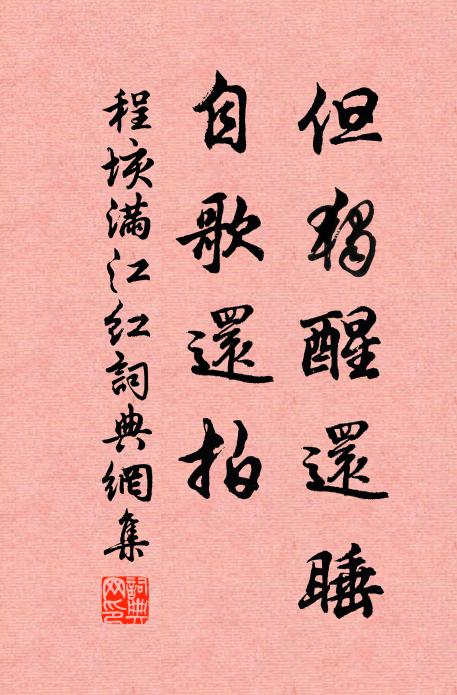 但獨醒還睡
自歌還拍
程垓滿江紅詞典網集
詞典網印